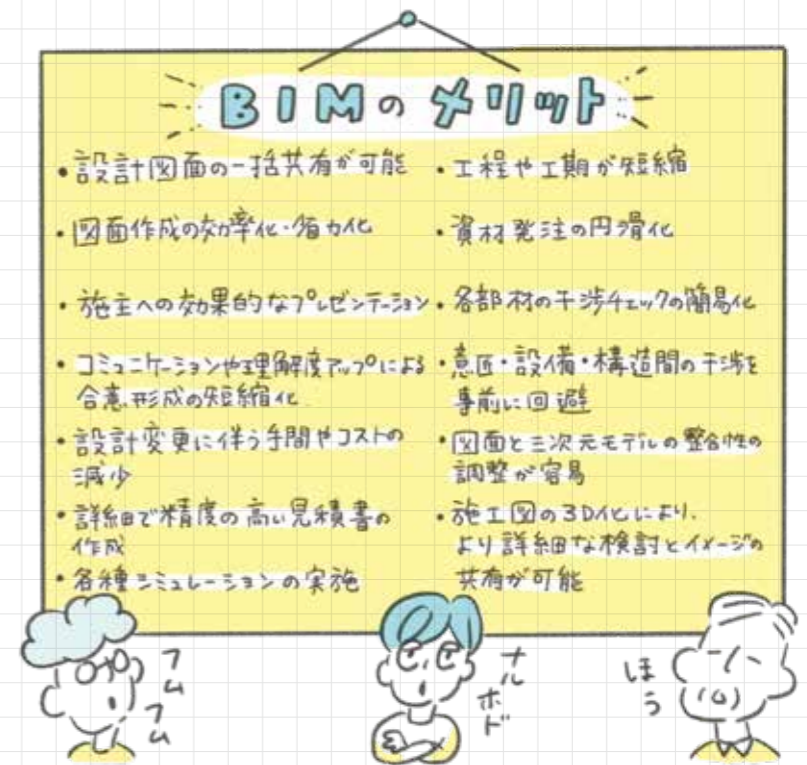 BIMのメリット
・設計図面の一括共有が可能
・図面作成の効率化・省力化
・施主への効果的なプレゼンテーション
・コミュニケーションや理解度アップによる
合意形成の短縮化
・設計変更に伴う手間やコストの
減少
・詳細で精度の高い見積書の
作成
・各種シミュレーションの実施
・工程や工期が短縮
・資材発注の円滑化
・各部材の干渉チェックの簡易化
・意匠・設備・構造間の干渉を
事前に回避
・図面と三次元モデルの整合性の
調整が容易
・施工図の3D化により、
より詳細な検討とイメージの
共有が可能
フムフム
ナルホド
ほう